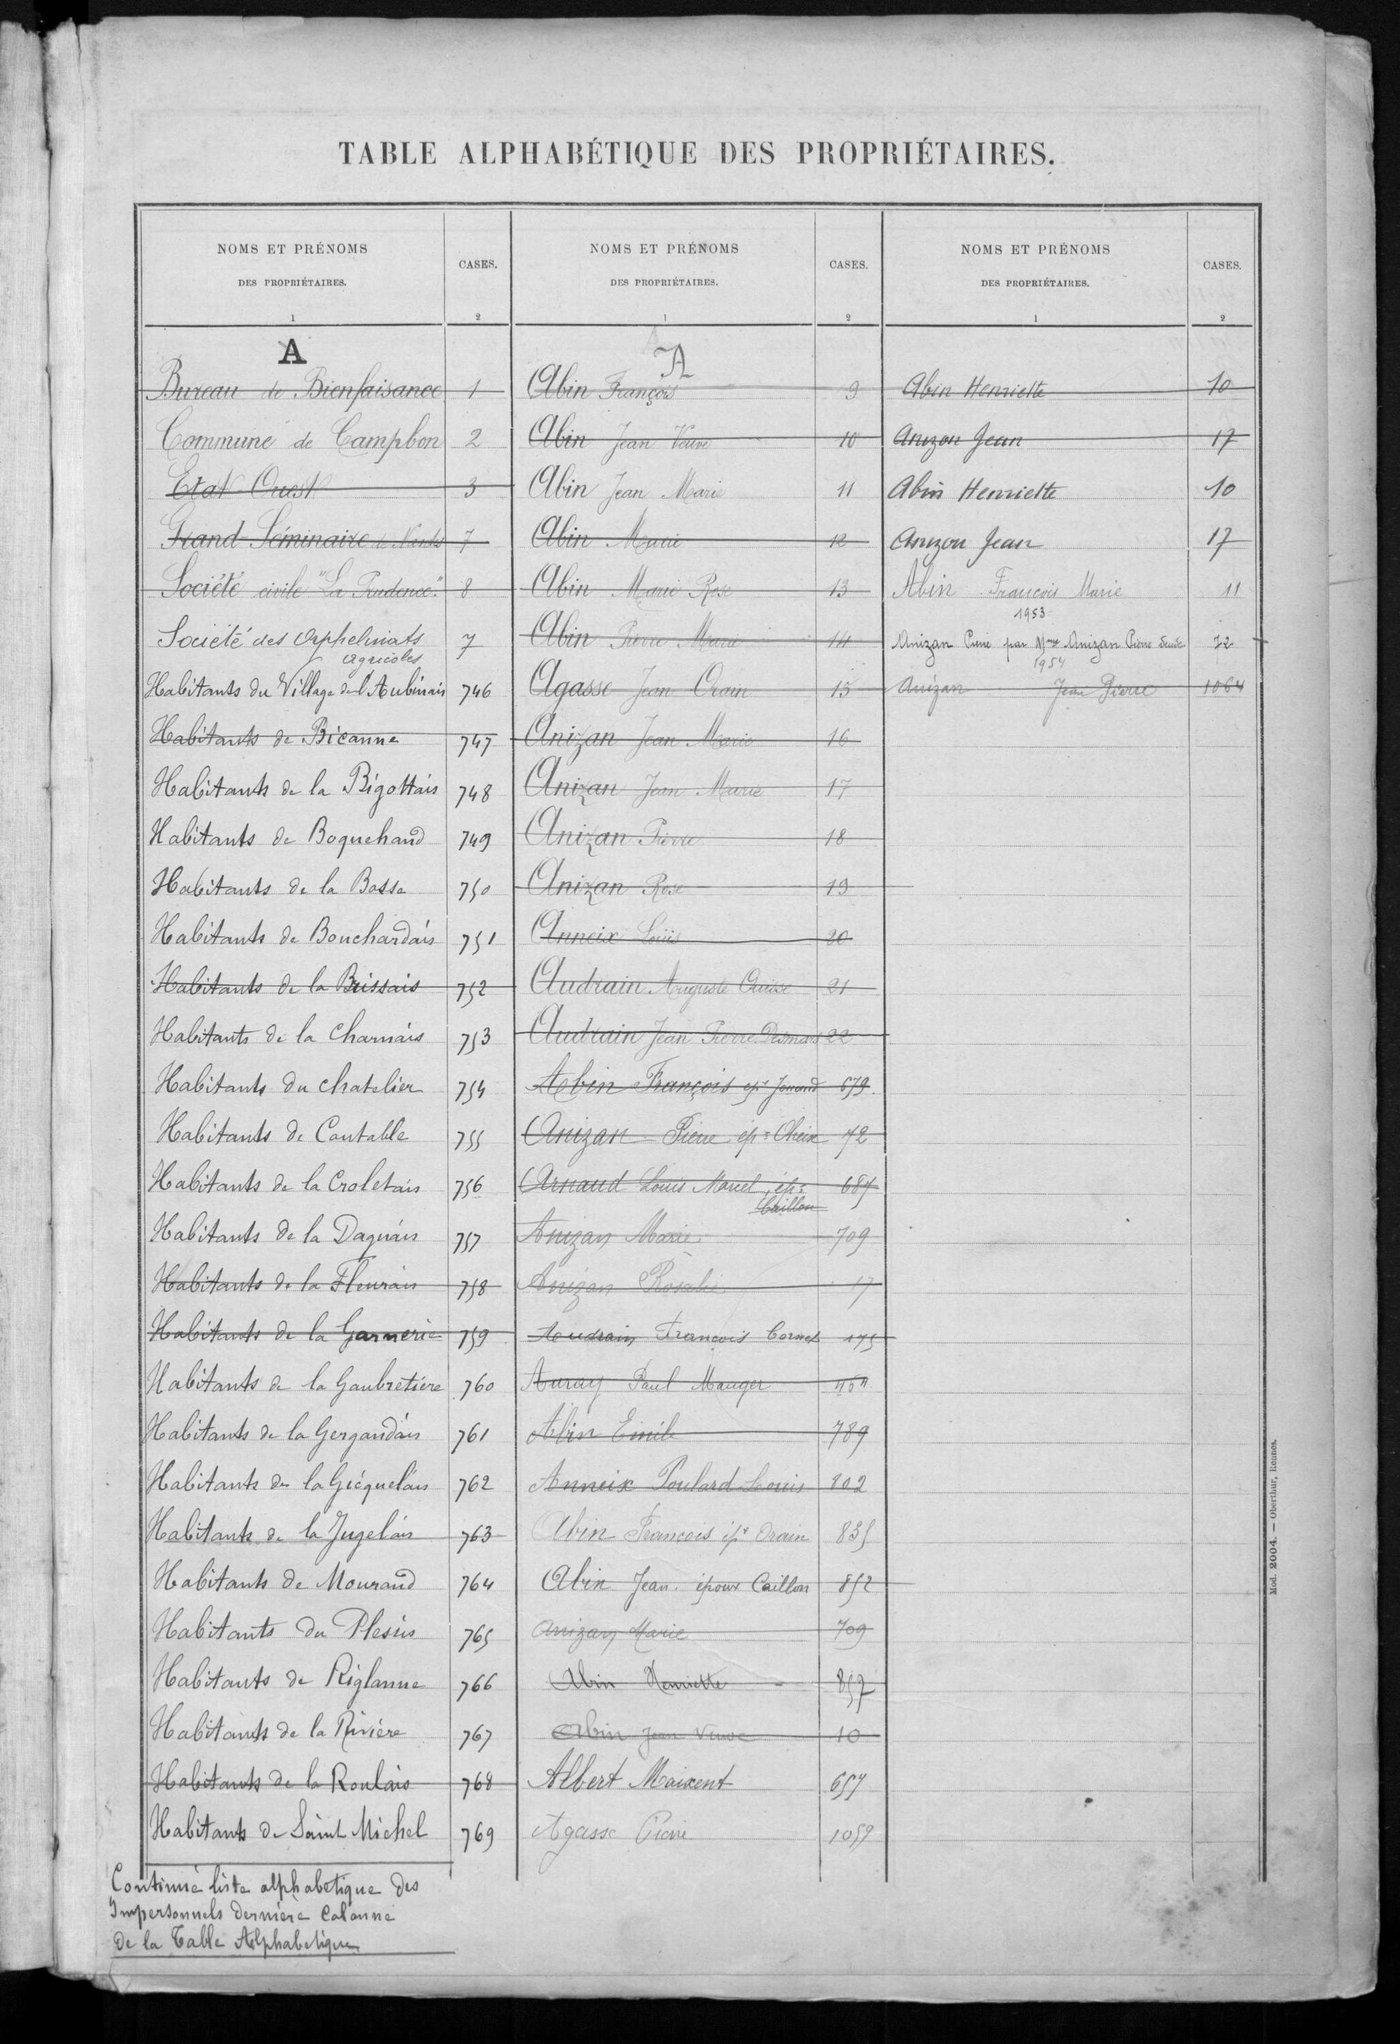 TABLE ALPHABÉTIQUE DES PROPRIÉTAIRES.
NOMS ET PRÉNOMS
DES PROPRIÉTAIRES.
CASES.
1
2
A
Bureau de Bienfaisance 1
Commune de Campbon 2
Etat Ouest 3
Grand Séminaire de Nantes 7
Société civile "La Prudence" 8
Société des Orphelinats agricoles 7
Habitants du Village de l'Aubinais 746
Habitants de Bicanne 747
Habitants de la Bigottais 748
Habitants de Boquehand 749
Habitants de la Bosse 750
Habitants de Bouchardais 751
Habitants de la Brissais 752
Habitants de la Charnais 753
Habitants du chatelier 754
Habitants de Coutable 755
Habitants de la Croletais 756
Habitants de la Daguais 757
Habitants de la Fleurais 758
Habitants de la Garnerie 759
Habitants de la Gaubretière 760
Habitants de la Gergaudais 761
Habitants de la Gicquelais 762
Habitants de la Jugelais 763
Habitants de Mouraud 764
Habitants du Plessis 765
Habitants de Riglanne 766
Habitants de la Rivière 767
Habitants de la Roulais 768
Habitants de Saint Michel 769
Continué liste alphabetique des
Impersonnels derniere colonne
de la Table Alphabetique
NOMS ET PRÉNOMS
DES PROPRIÉTAIRES.
CASES.
1
2
A
Abin François 9
Abin Jean Veuve 10
Abin Jean Marie 11
Abin Marie 12
Abin Marie Rose 13
Abin Pierre Marie 14
Agasse Jean Orain 15
Anizan Jean Marie 16
Anizan Jean Marie 17
Anizan Pierre 18
Anizan Rose 19
Anneix Louis 20
Audrain Auguste 21
Audrain Jean Pierre 22
Abin François 679
Anizan Pierre ép= 72
Arnaud Louis Marcel ép= Caillon 687
Anizan Marie 709
Anizan Rosalie 17
Audrain François Cornet 175
Auray Paul Mauger
Abin Emile 789
Anneix Poulard Louis 802
Abin François épx Orain 835
Abin Jean époux Caillon 852
Anizan Marie 709
Abin Henriette 857
Abin Jean Veuve 10
Albert Maixent 657
Agasse Pierre 1059
NOMS ET PRÉNOMS
DES PROPRIÉTAIRES.
CASES.
1
2
Abin Henriette 10
Anizon Jean 17
Abin Henriette 10
Anizon Jean 17
Abin François Marie 11
1953
Anizan Pierre par Mme Anizan Pierre 72
1954
Anizan Jean Pierre 1064
Mod. 2004. — Oberthur, Rennes.